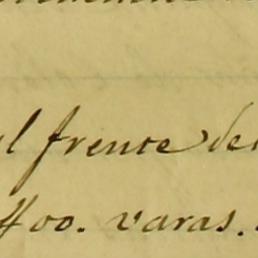 al frente del
400. varas.